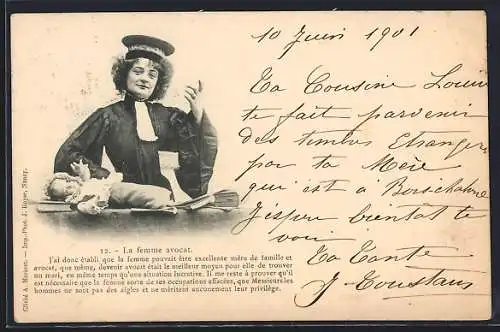 10 Juin 1901
Ta Cousine Louise
te fait parvenir
des timbres Etrangers
par ta Mère
qui est à
J'espère bientôt te
voir
Ta Tante
J. Toustain
12. — La femme avocat.
J'ai donc établi que la femme pouvait être excellente mère de famille et
avocat, que même, devenir avocat était le meilleur moyen pour elle de trouver
un mari, en même temps qu'une situation lucrative. Il me reste à prouver qu'il
est nécessaire que la femme sorte de ses occupations effacées, que Messieurs les
hommes ne sont pas des aigles et ne méritent aucunement leur privilège.
Cliché A. — Imp.-Phot. J. Royer, Nancy.